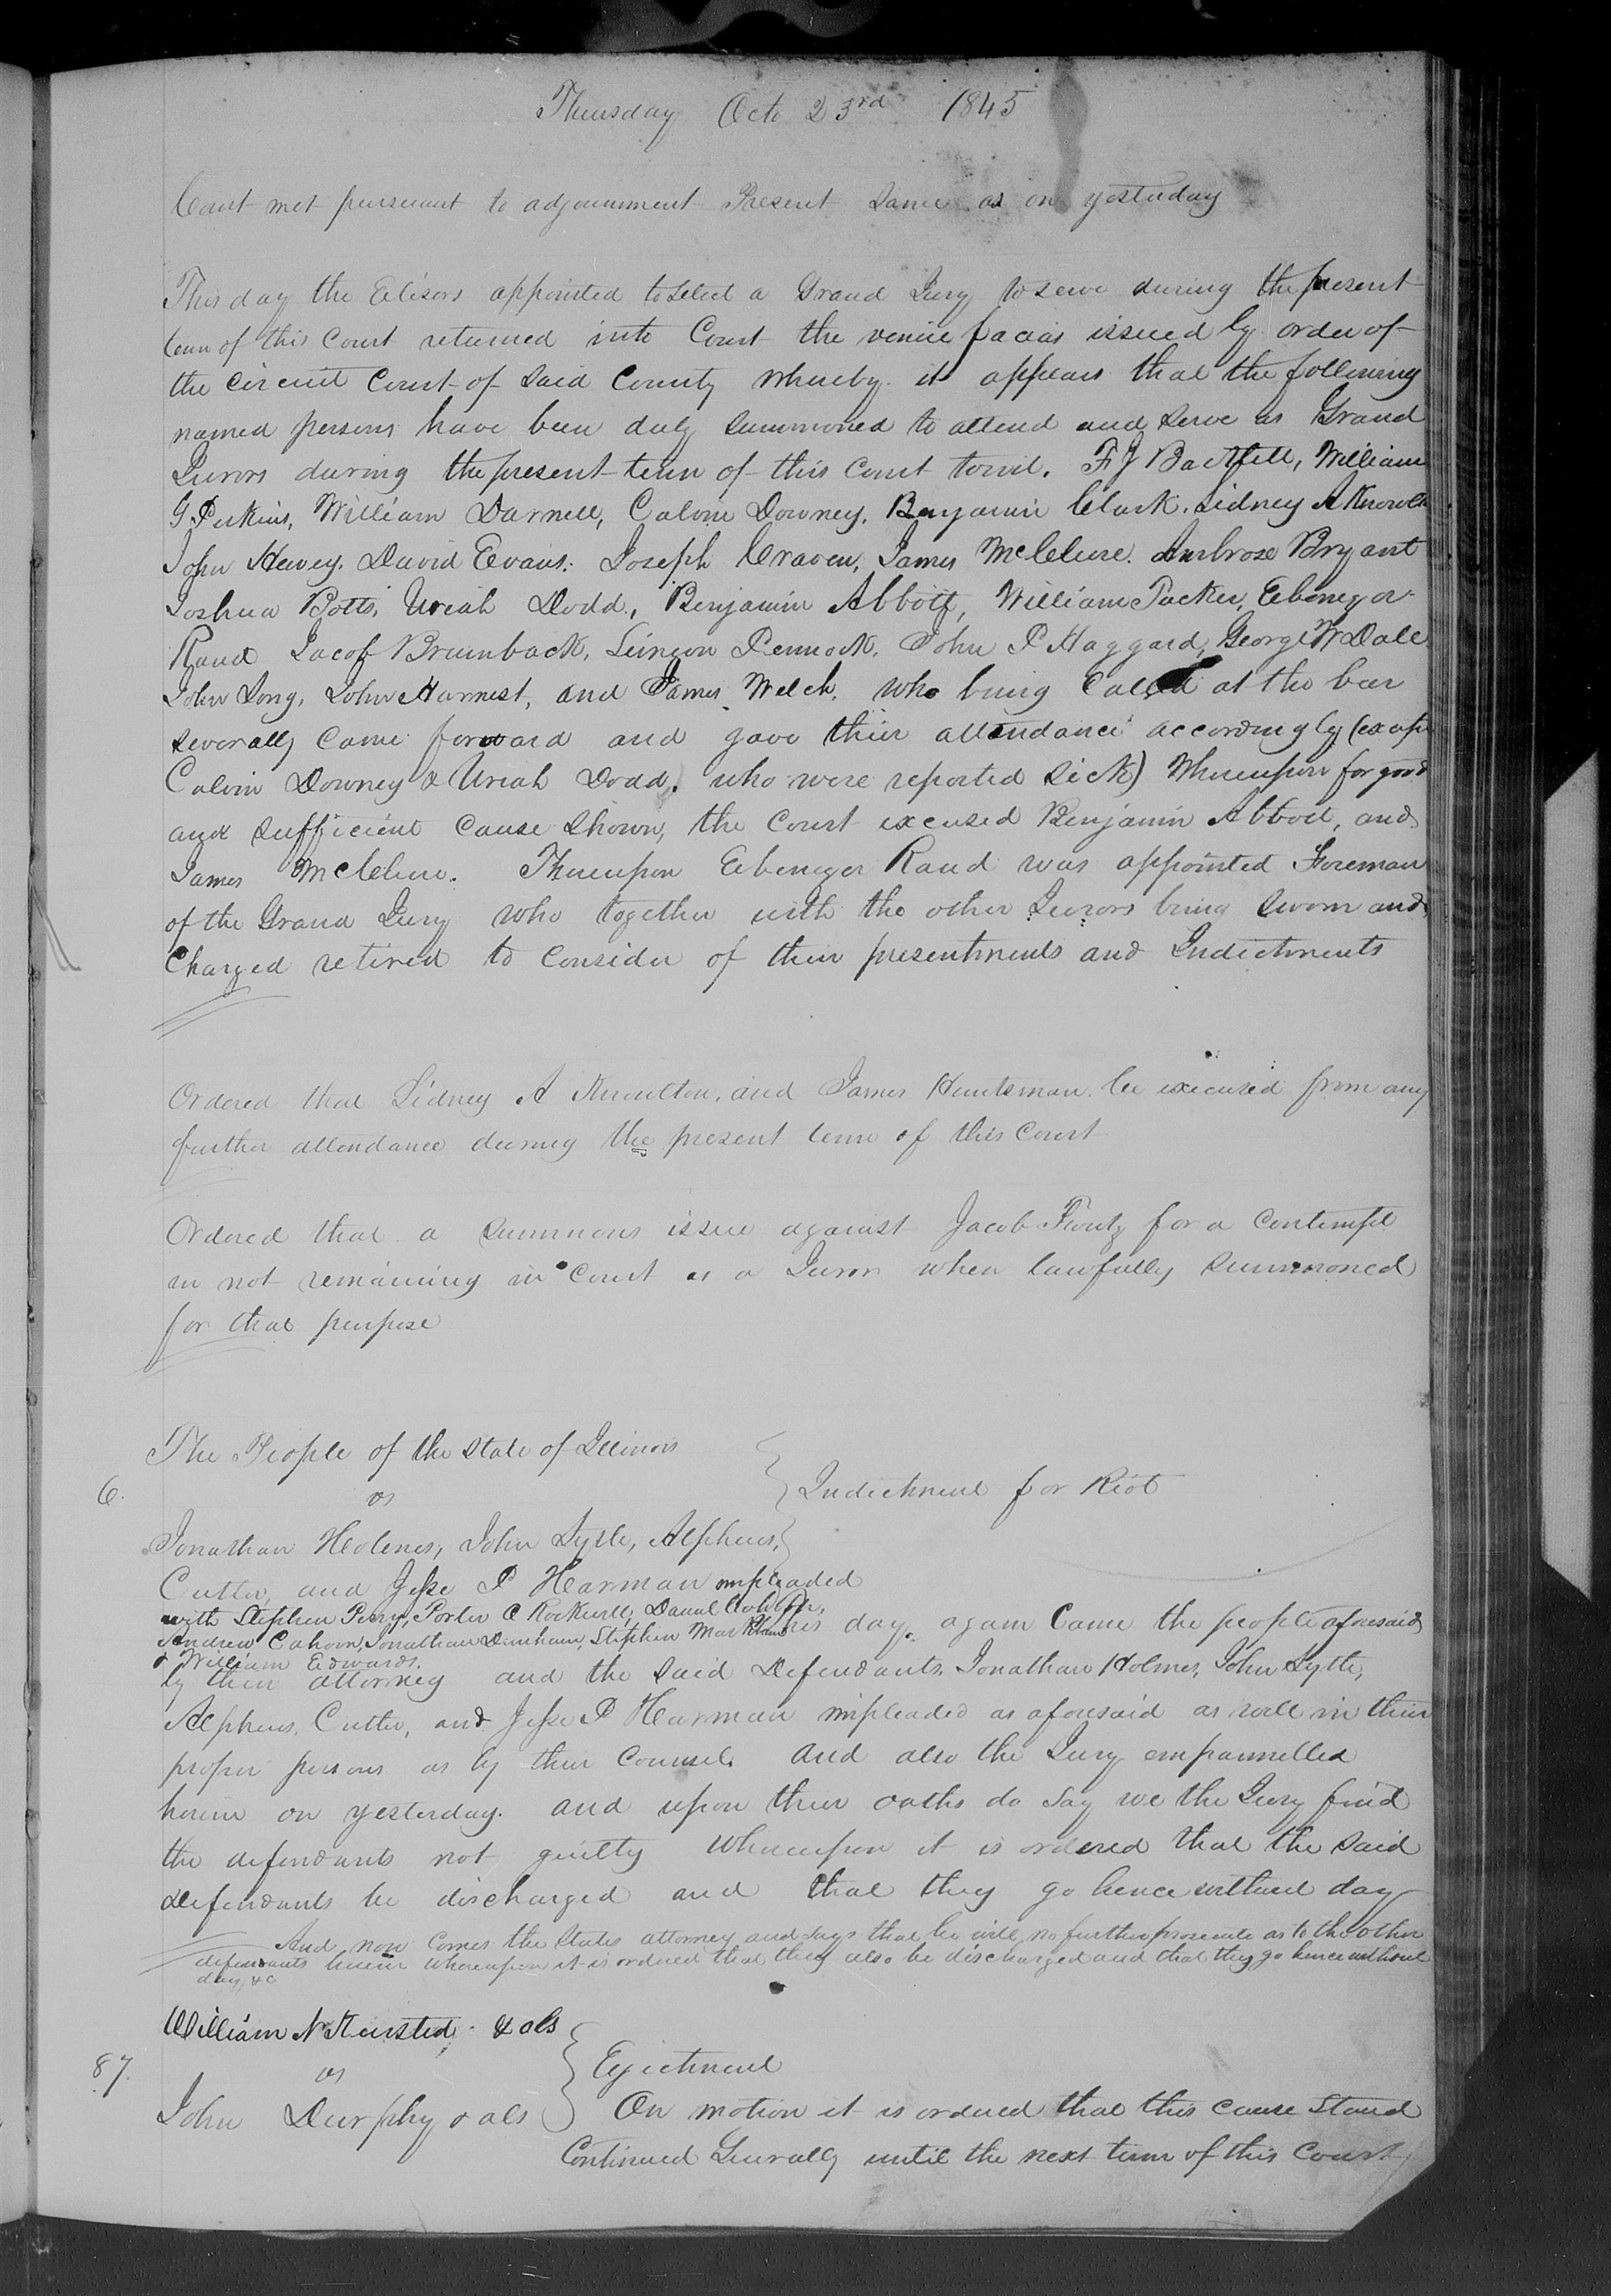 Thursday Octo 23rd 1845
Court met pursuant to adjournment Present Same as on yesterday
This day the Elisors appointed to Select a Grand Jury to serve during the present
term of this Court returned into Court the venire facias issued by order of
the Circuit Court of Said County whereby it appears that the following
named persons have been duly Summoned to attend and Serve as Grand
Jurors during the present term of this Court towit. F J Bartlett, William
G Perkins, William Darnell, Calvin Downey, Benjamin Clark, Sidney A Knowlton
John Harvey, David Evans, Joseph Craven, James McClure, Ambrose Bryant
Joshua Botts, Uriah Dodd, Benjamin Abbott, William Packer, Ebenezer
Rand Jacob Brumback, Simeon Pennock, John P Haggard, George W Dale
John Long, John Harnest, and James Welch, who being Called at the bar
Severally Came forward and gave their attendance accordingly (except
Calvin Downey & Uriah Dodd, who were reported Sick) Whereupon for good
and Sufficient Cause Shown, the Court excused Benjamin Abbott, and
James McClure. Thereupon Ebenezer Rand was appointed Foreman
of the Grand Jury who together with the other Jurors being Sworn and
Charged retired to Consider of their presentments and Indictments
Ordered that Sidney A Knowlton, and James Huntsman be excused from any
further attendance during the present term of this Court
Ordered that a Summons issue against Jacob Fouty for a Contempt
in not remaining in Court as a Juror when lawfully Summoned
for that purpose
The People of the State of Illinois
6. vs Indictment for Riot
Jonathan Holmes, John Lytle, Alpheus
Cutler, and Jesse P Harman impleaded
with Stephen Perry, Porter C Rockwell, Daniel
Andrew Cahoon, Jonathan Dunham, Stephen Markham
& William Edwards.
This day again Came the people aforesaid
by their attorney and the Said Defendants Jonathan Holmes, John Lytle,
Alpheus Cutler, and Jesse P Harman impleaded as aforesaid as well in their
proper persons as by their Counsel. And also the Jury empannelled
herein on yesterday. and upon their oaths do Say we the Jury find
the defendants not guilty Whereupon it is ordered that the Said
Defendants be discharged and that they go hence without day
And now Comes the States attorney and Says that he will no further prosecute as to the other
defendants herein whereupon it is ordered that they also be discharged and that they go hence without
day, &c
William N &als
87. vs Ejectment
John Durphy & als On motion it is ordered that this Cause Stand
Continued Generally until the next term of this Court